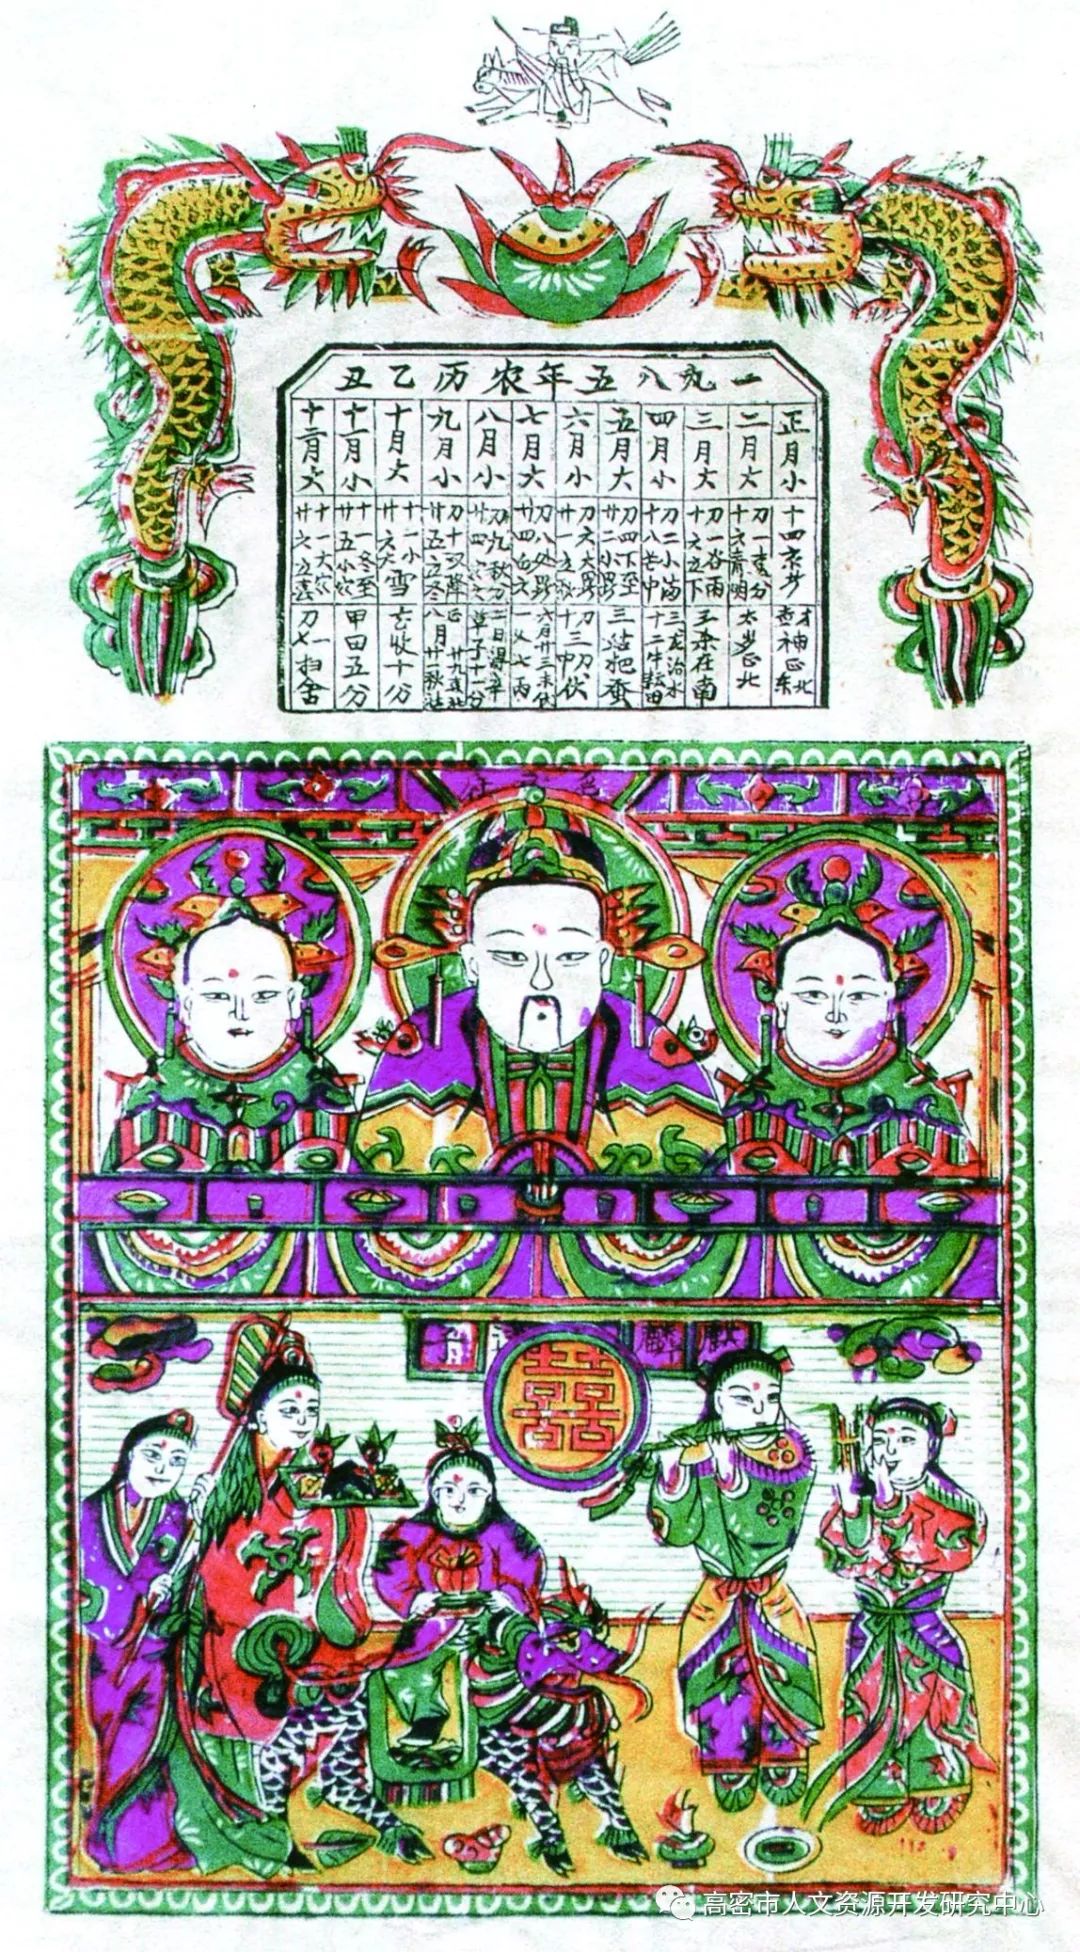 一九八五年农历乙丑
正月小
二月大
三月大
四月小
五月大
六月小
七月大
八月小
九月小
十月大
十一月小
十二月大
十四
刀一春分
十六青明
刀一谷雨
十六立下
刀二小满
十八芒中
刀四下至
廿二小暑
刀六大暑
廿一立秋
刀八处暑
廿四白
刀九秋分
廿四
刀十 降
廿五立冬
十一小雪
廿六大
十一冬至
廿五小寒
十一大寒
廿六立春
才神正北
喜神正东
太岁正北
五杀在南
三龙治水
十二牛耘田
三姑把蚕
刀三刀伏
十三中伏
六月廿三末伏
八月廿一秋社
去收十分
甲田五分
刀七扫舍
麒麟送子
囍
高密市人文资源开发研究中心